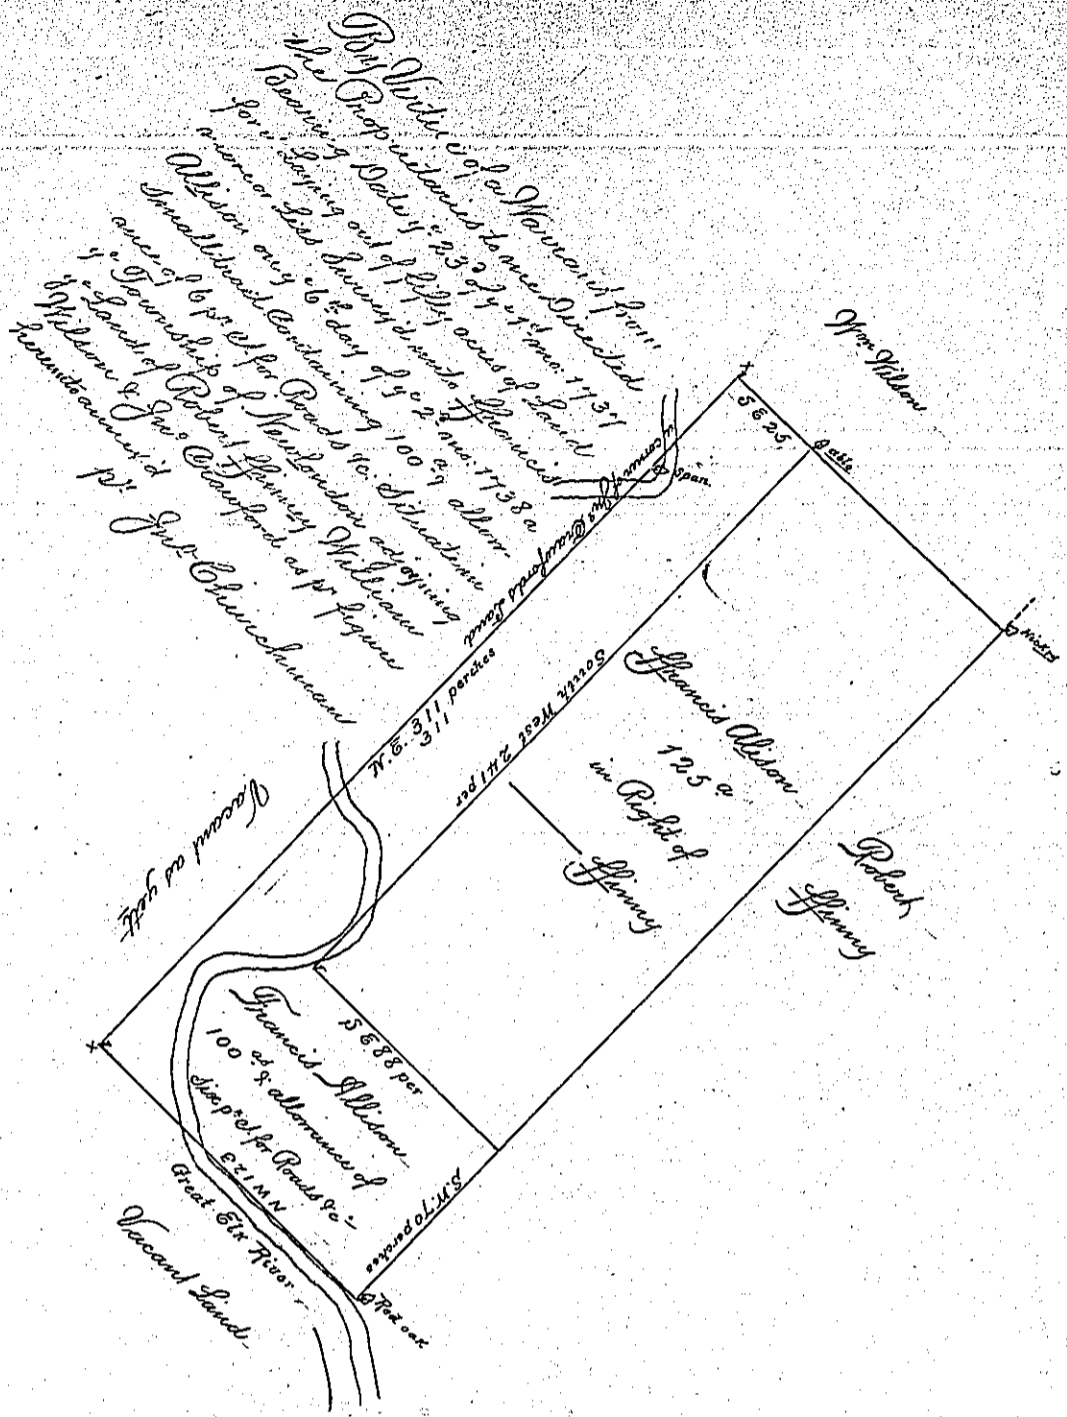 By Virtue of a Warrant from
the Proprietaries to me Directed
Bearing Date yᵉ 23ᵈ of yᵉ 1ˢᵗ mo. 1737
for yᵉ Laying out of fifty acres of Land
more or Less Survey'd unto Ffrancis
Allison on yᵉ 6ᵗʰ day of yᵉ 2ᵈ mo. 1738 a
Small tract Containing 100 aˢ & allow
ance of 6 pʳ Cᵗ for Roads &c. Situate in
yᵉ Township of New London adjoyning
yᵉ Land of Robert Ffinney William
Wilson & Jnᵒ Crawford as pʳ figure
hereunto annex'd
pʳ Jnᵒ Churchman
Wm Wilson
S E 25
Span.
corner of Jnᵒ Crawfords Land
N. E. 311 perches
311
South West 241 per
Ffrancis Alison
125 a
in Right of
Ffinny
Robert
Ffinny
Vacant as yett
S E 88 per
Francis Allison
100 aˢ & allowance of
six pʳ cᵗ for Roads &c
N W 123
S. W. 70 perches
Great Elk River
Red oak
Vacant Land